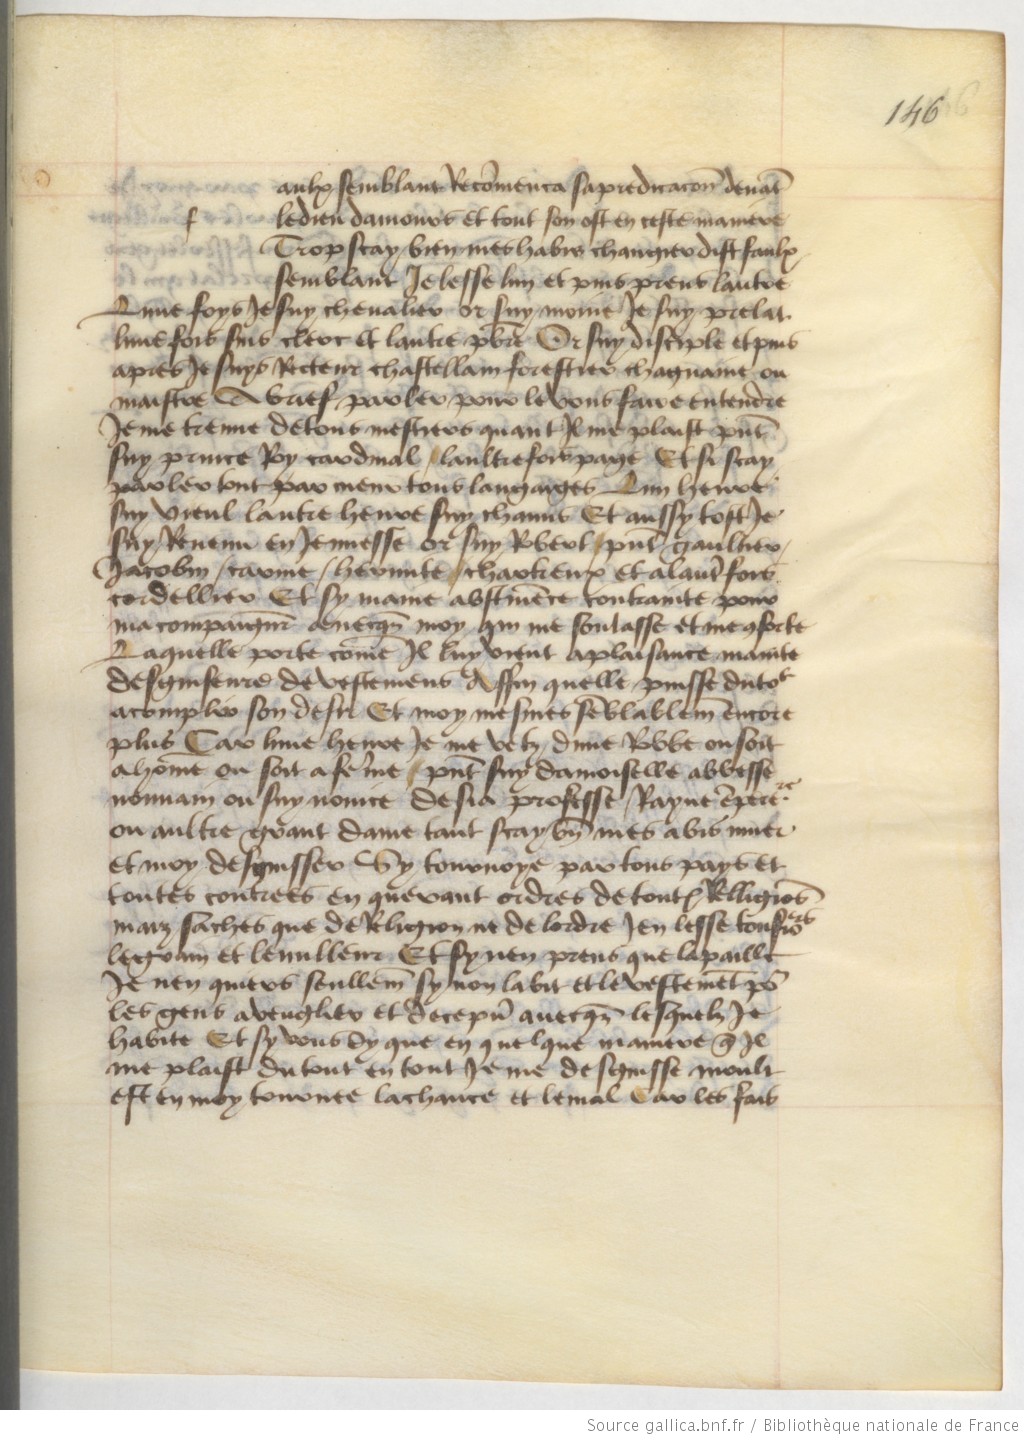 146
aulx semblant Recõmenca sa predicacõn deuãt
f
le dieu damours et tout son ost en ceste maniere
Trop scay bien mes habis changier dist faulx
semblant Je lesse lun et puis prens lautre
Lune foys Je suy cheualier or suy moine Je suy prelat
lune fois suis clerc et lautre pbr̃e Or suy disciple et puis
apres Je suys Recteur chastellain forestier chaguaine ou
maistre A brief parler pour le vous faire entendre
Je me tienne de tous mestiers quant Il me plaist pñt
suy prince Roy cardinal / laultre fois page Et si scay
parler tout par meur tous langaiges Lun heure
suy vieul lautre heure suy chanus Et aussy tost Je
suy Reuenu en Jennesse or suy Robert / puis gaultier /
Jacobin / carme / hermite / chartreux et a lautr̃ fois
cordellier Et sy maine abstinẽce contrainte pour
ma compaigñe auecq̃s moy qui me soulasse et me 9forte
Laquelle porte cõme Il luy vient a plaisance mainte
desguiseure de vestemens Affin quelle puisse du to9
acomplir son desir Et moy mesmes sẽblablem̃ encore
plus Car lune heure Je me vetz dune Robbe ou soit
a hõme ou soit a fẽme / pñt suy damoiselle abbesse
nonnain ou suy nouice desia professe / Rayne ẽpere.re
ou aultre grãnt dame tant scay bñ mes abis muer
et moy desguisser Sy tournoye par tous pays et
toutes contrees en querant ordres de toutes Relligiõs
maiz saches que de Religion ne de lordre Jen lesse tousio.rs
le grain et lenulleur Et sy nen prens que la paille
Je nen quiers seullem̃ sy non labit et le vestemẽt po.r
les gens aveugler et decepuoir auecq̃s lesquelz Je
habite Et sy vous dy que en quelque maniere q̃ Il
me plaist du tout en tout Je me desguisse moult
est en moy tournee la chance et le mal Car les fais
Source gallica.bnf.fr / Bibliothèque nationale de France